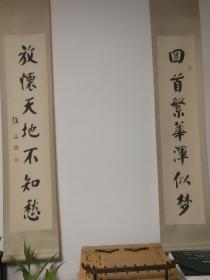 回首繁華渾似梦
放懷天地不知愁